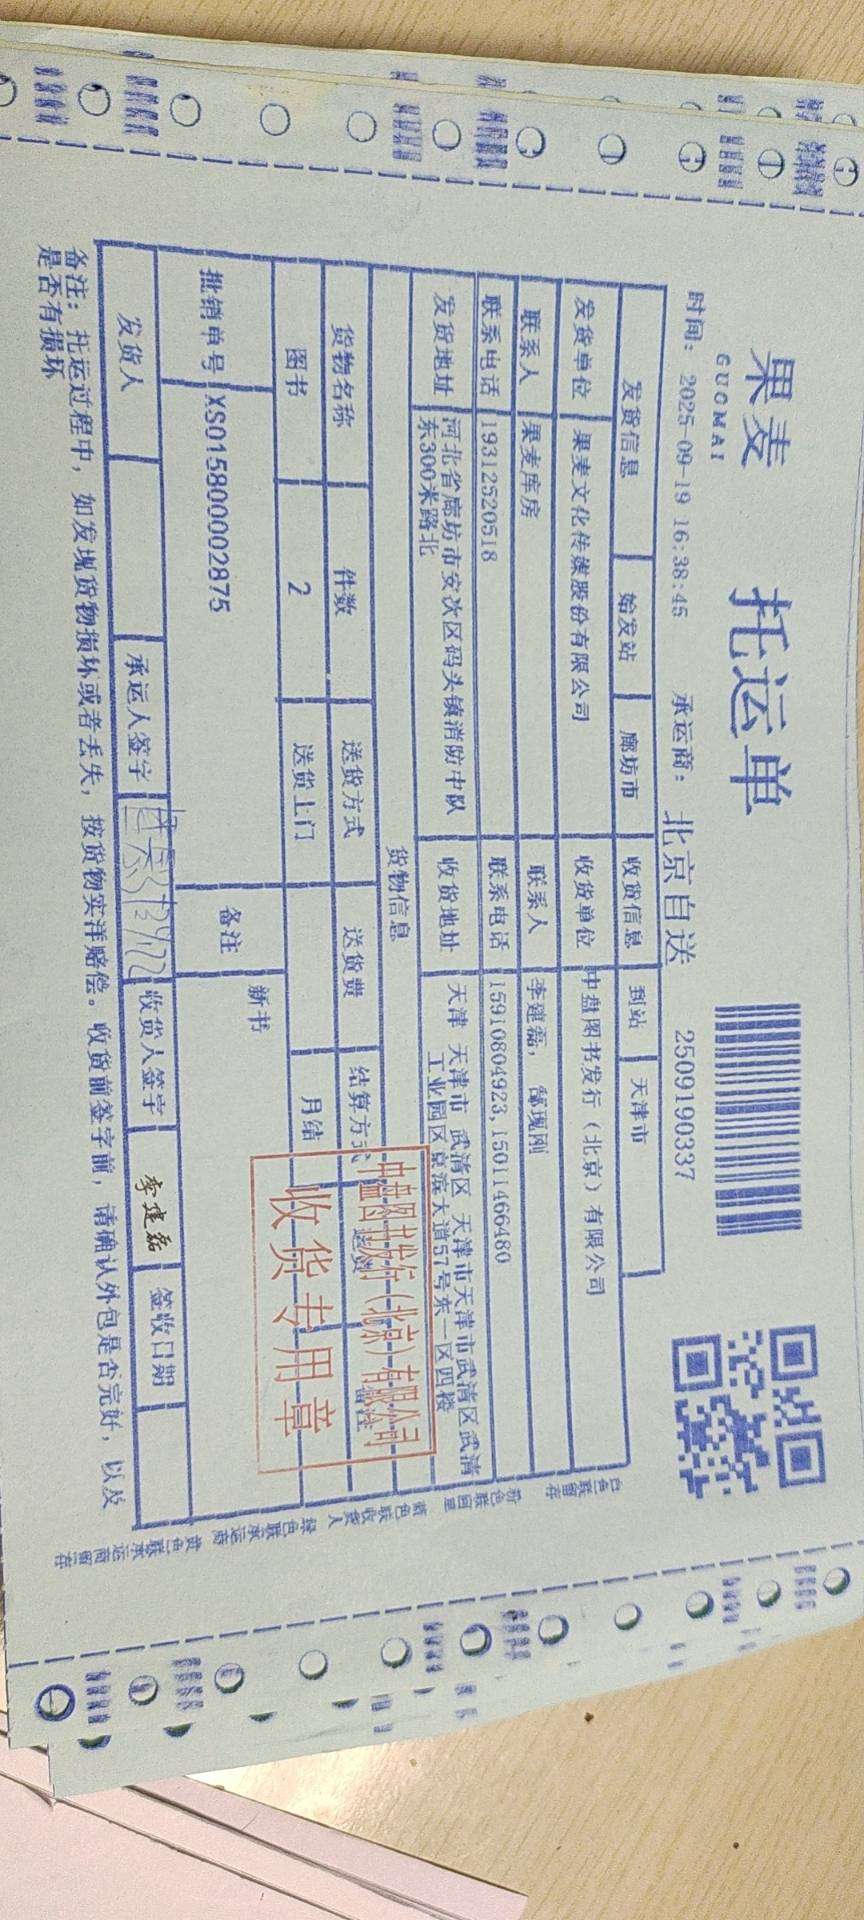 果麦
GUOMAI
托运单
时间： 2025-09-19 16:38:45 承运商： 北京自送 2509190337
发货信息 始发站 廊坊市 收货信息 到站 天津市
发货单位 果麦文化传媒股份有限公司 收货单位 中盘图书发行（北京）有限公司
联系人 果麦库房 联系人 李建磊，
联系电话 19312520518 联系电话 15910804923,15011466480
发货地址 河北省廊坊市安次区码头镇消防中队东300米路北 收货地址 天津 天津市 武清区 天津市天津市武清区武清工业园区京滨大道57号东一区四楼
货物信息
货物名称 件数 送货方式 送货费 结算方式 备注
图书 2 送货上门 月结
批销单号 XS015800002875 备注 新书
中盘图书发行（北京）有限公司
收货专用章
发货人 承运人签字 收货人签字 李建磊 签收日期
备注：托运过程中，如发现货物损坏或者丢失，按货物实洋赔偿。收货前签字前，请确认外包是否完好，以及
是否有损坏
白色联留存
粉色联回单
蓝色联收货人
绿色联承运商
黄色联承运商留存